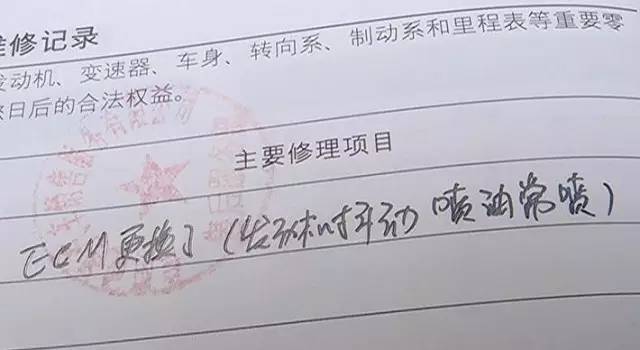 维修记录
发动机、变速器、车身、转向系、制动系和里程表等重要零
您日后的合法权益。
主要修理项目
ECM更换了(发动机时抖动 喷油常喷)